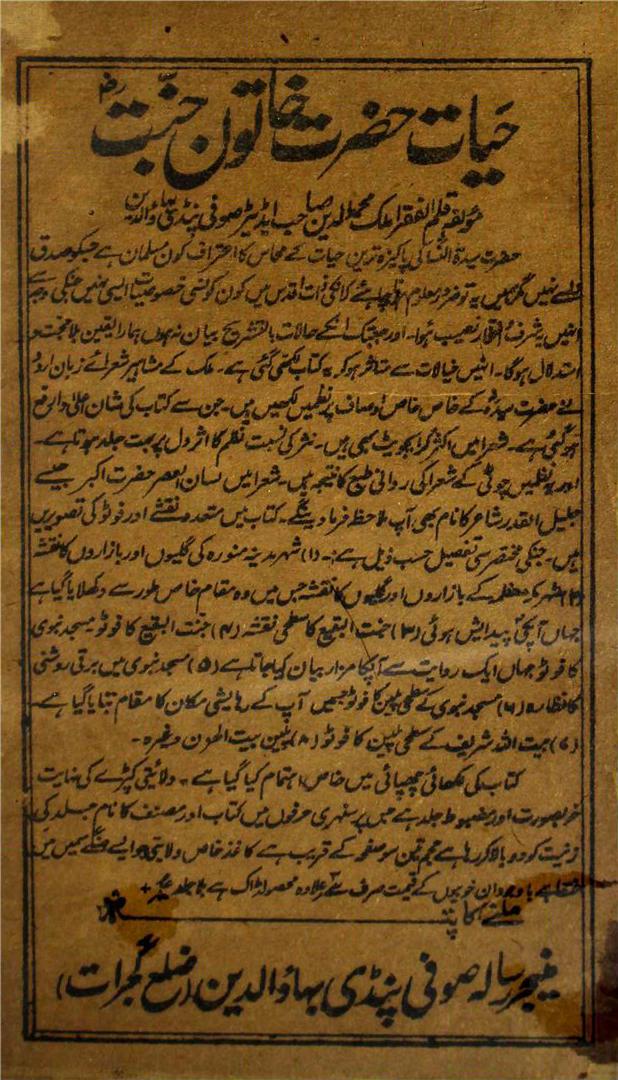 حیات حضرت خاتون جنت رض
مؤلفہ قلم الفقرا ملک محمد الدین صاحب ایڈیٹر صوفی پنڈی بہاؤالدین
حضرت سیدۃ النسا کی پاکیزہ ترین حیات کے محاسن کا اعتراف کون مسلمان ہے جسکو صدق
دل سے نہیں مگر ہمیں یہ تو ضرور معلوم ہونا چاہئے کہ انکی ذات اقدس میں کون کونسی خصوصیات ایسی تہیں جنکی وجہ سے
انہیں یہ شرف و افتخار نصیب ہوا۔ اور جبتک انکے حالات بالتشریح بیان نہ ہوں ہمارا یقین بلا حجت و
استدلال ہوگا۔ انہیں خیالات سے متاثر ہو کر یہ کتاب لکھی گئی ہے۔ ملک کے مشاہیر شعرائے زبان اردو
نے حضرت سیدہ کے خاص خاص اوصاف پر نظمیں لکھیں ہیں۔ جن سے کتاب کی شان اعلیٰ و ارفع
ہو گئی ہے۔ شعرا میں اکثر گریجویٹ بھی ہیں۔ نثر کی نسبت نظم کا اثر دل پر بہت جلد ہوتا ہے۔
اور یہ نظمیں چوٹی کے شعرا کی روانی طبع کا نتیجہ ہیں۔ شعرا میں لسان العصر حضرت اکبر جیسے
جلیل القدر شاعر کا نام بھی آپ ملاحظہ فرما دینگے۔ کتاب میں متعدد نقشے اور فوٹو کی تصویریں
ہیں۔ جنکی مختصر سی تفصیل حسب ذیل ہے:۔ (۱) شہر مدینہ منورہ کی گلیوں اور بازاروں کا نقشہ
(۲) شہر مکہ معظمہ کے بازاروں اور گلیوں کا نقشہ جس میں وہ مقام خاص طور سے دکھلایا گیا ہے
جہاں آپکی پیدایش ہوئی (۳) جنت البقیع کا سطحی نقشہ (۴) جنت البقیع کا فوٹو مسجد نبوی
کا فوٹو جہاں ایک روایت سے آپکا مزار بیان کیا جاتا ہے (۵) مسجد نبوی میں برقی روشنی
کا نظارہ (۶) مسجد نبوی کے سطحی پلین کا فوٹو جسمیں آپ کے رہایشی مکان کا مقام بتایا گیا ہے۔
(۷) بیت اللہ شریف کے سطحی پلین کا فوٹو (۸) پلین بیت الحزن وغیرہ۔
کتاب کی لکھائی چھپائی میں خاص اہتمام کیا گیا ہے۔ ولائتی کپڑے کی نہایت
خوبصورت اور مضبوط جلد ہے جس پر سنہری حرفوں میں کتاب اور مصنف کا نام جلد کی
زینت کو دوبالا کر رہا ہے حجم تین سو صفحہ کے قریب ہے کاغذ خاص ولایتی جو ایسے مہنگے سمیں میں
باوجود ان خوبیوں کے قیمت صرف علاوہ محصولڈاک ہے بلا جلد
ملنے کا پتہ
منیجر رسالہ صوفی پنڈی بہاؤالدین (ضلع گجرات)